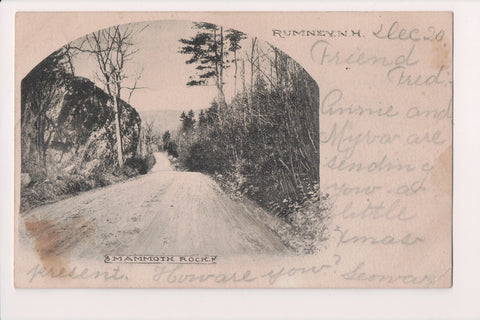 RUMNEY, N.H.
Dec 20
Friend
Fred:-
Annie and
Myra are
sending
you a
little
Xmas
present. How are you?
MAMMOTH ROCK.